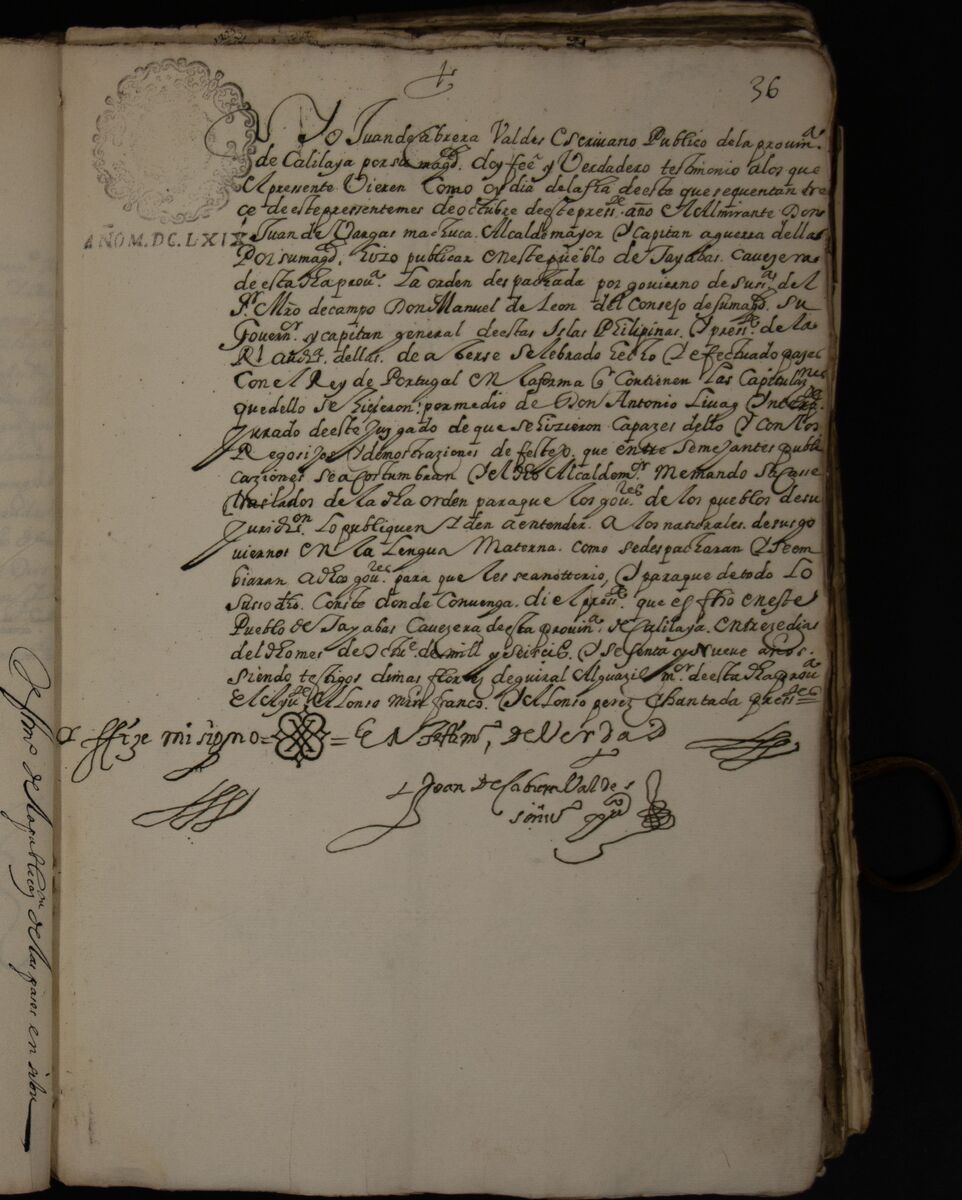 36
AÑO M.DC.LXIX
Yo Juan de Cabrera Valdes Escrivano Publico de la provin.a
de Calilaya por su magd. doy fee y Verdadero testimonio a los que
el pressente Vieren Como oy dia de la fha deeste que se quentan tre
ce deeste pressente mes de octubre deeste press.te año El Almirante Don
Juan de Vargas machuca. Alcalde mayor y Capitan aguerra dellas
Por su magd. hizo publicar en este pueblo de Tayabas. Cavezera
de esta dha prou.a La orden despachada por govierno de su s.a del
S.r Mro de campo Don Manuel de Leon del Consejo de su magd. su
Govern.or y capitan general deestas Islas Philipinas. y press.te de la
Rl aud.a dellas. de aberse selebrado hecho y efectuado pazes
Con el Rey de Portugal en la forma q Contienen las Capitulaz.nes
que dello se hizieron: por medio de Don Antonio
Jurado de este Juzgado de que se hizieron Capazes dello y con los
Regosijos y demostraziones de festejo. que entre semejantes publi
caziones se acostumbran y el dho Alcalde m.or me mando sacasse
traslados de la dha orden para que los gov.res de los pueblos de su
Juridiz.on lo publiquen y den a entender. a los naturales. de sus go
viernos en la lengua Materna. como se despacharan y se em
biaran a dhos gov.res para que les sea nottorio, y para que de todo lo
suso dho. Conste donde Convenga. di el press.te que es fho en este
Pueblo de Tayabas Cavezera deesta provin.a de Calilaya. en treze dias
del dho mes de Octu.e de mill y seisci.s y sesenta y Nueve años.
siendo testigos dimas flores de guiral Alguazil m.or de esta dha prou.a
el Ayu.te Alonso mrn franco. y Alonso perez Chantada press.tes
y ffize mi signo = = En Testim.o de Verdad
Joan De Cabrera Valdes
scriv.o pp.co
Testimo de la publicaz.on de las pazes en